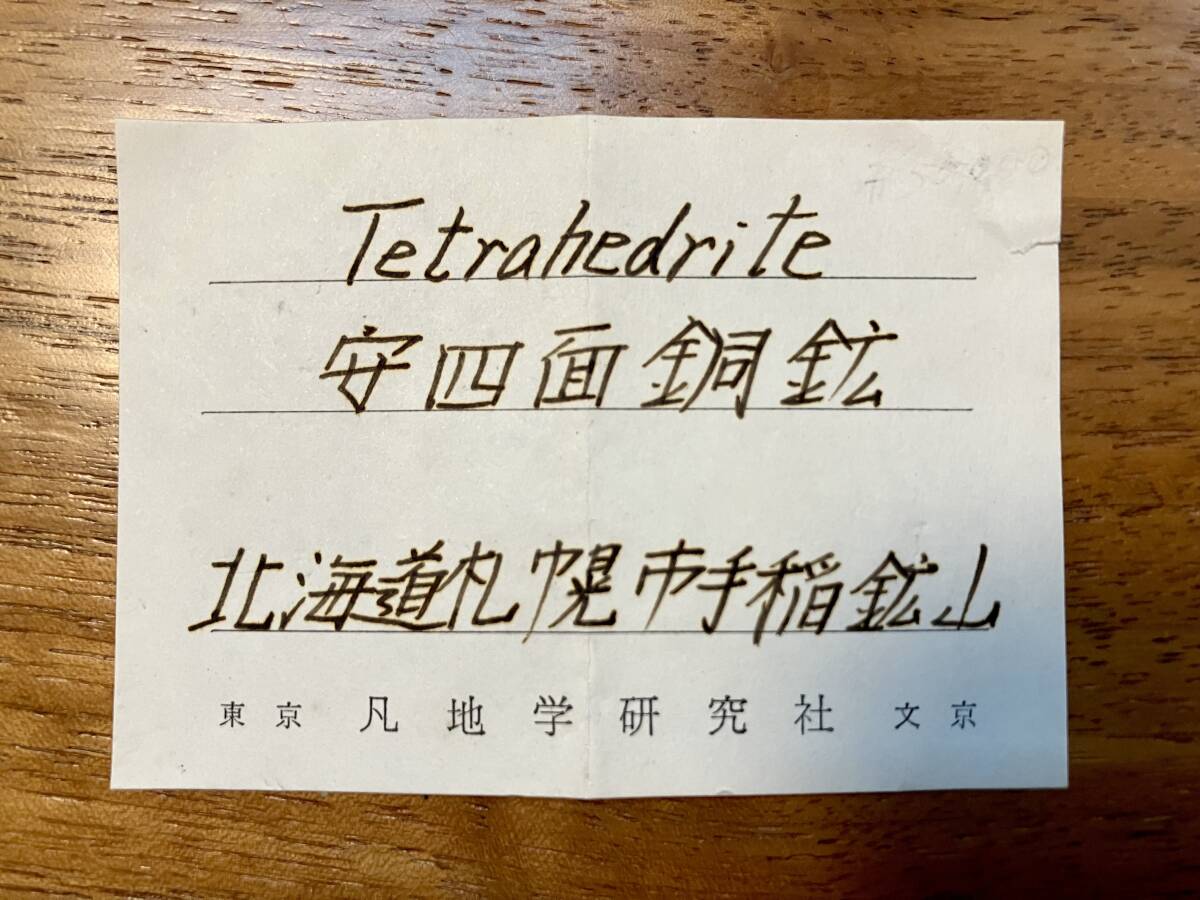 Tetrahedrite
安四面銅鉱
北海道札幌市手稲鉱山
東京 凡地学研究社 文京